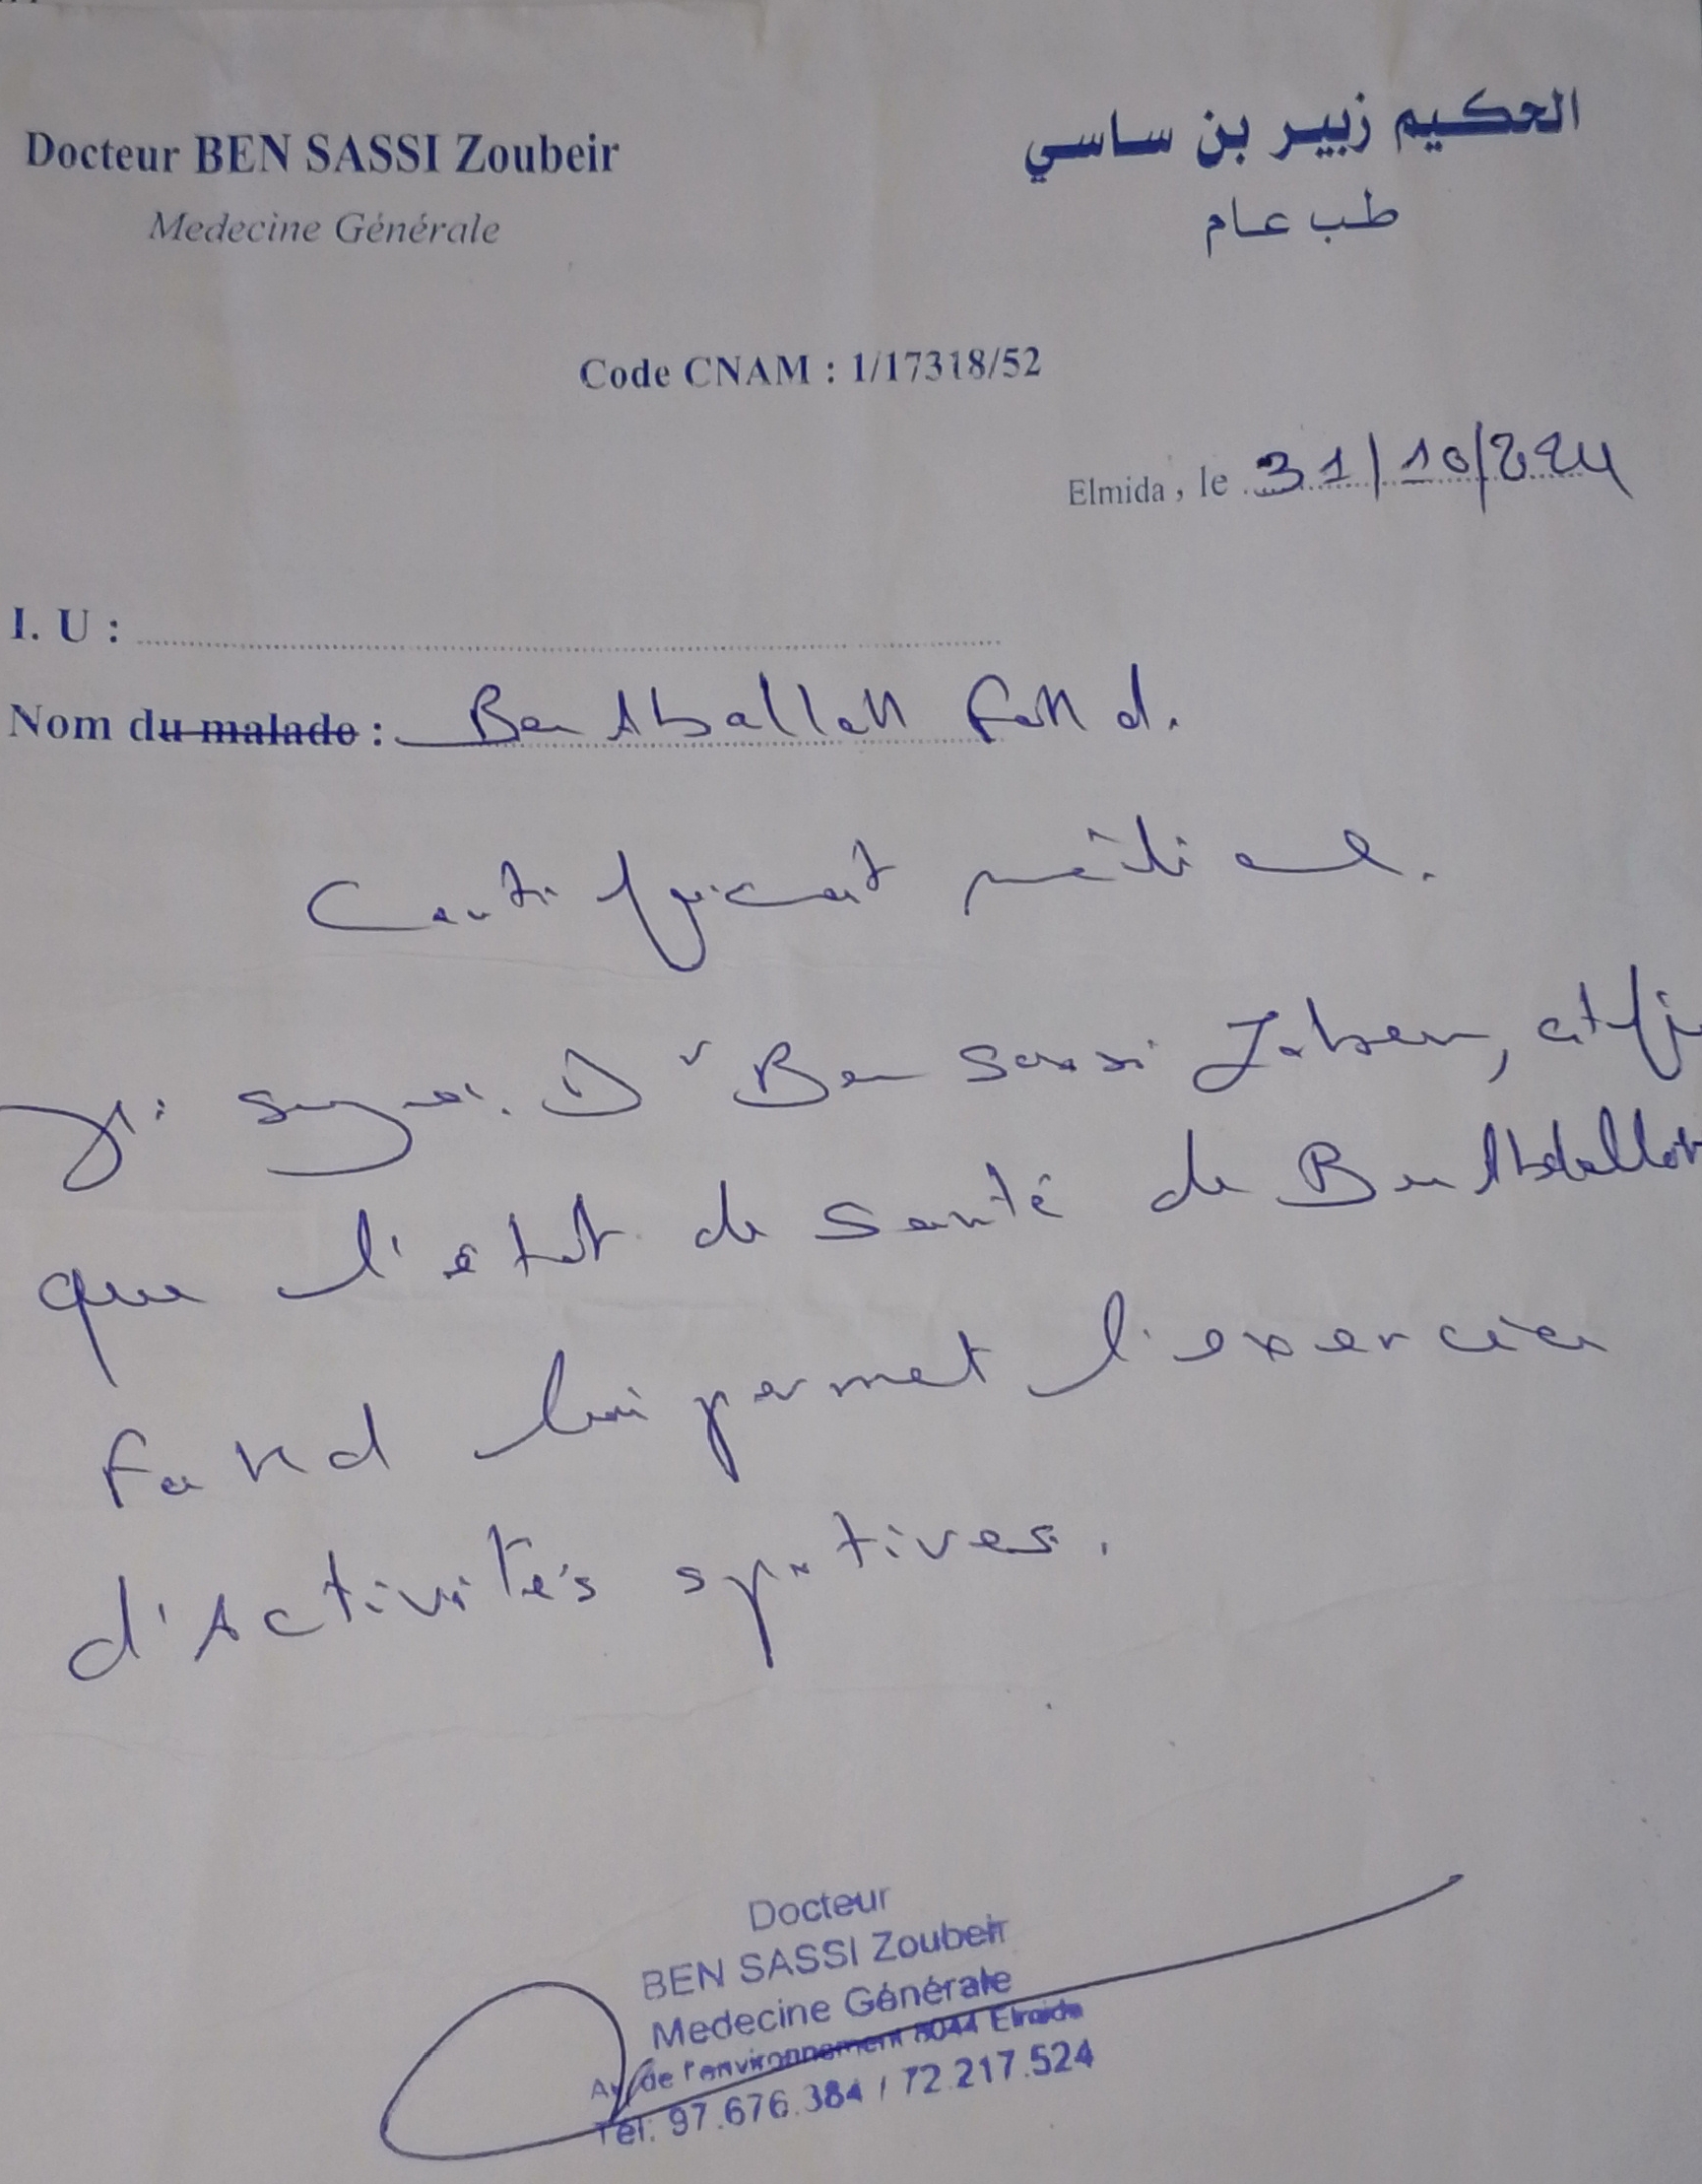 Docteur BEN SASSI Zoubeir
Medecine Générale
الحكيم زبير بن ساسي
طب عام
Code CNAM : 1/17318/52
Elmida , le 31/10/2024
I. U :
Nom du malade : Ben Aballah Fahd.
Certificat médical.
Je soussigné. Dr Ben Sassi Zoubeir, certifie
que l'état de santé de Ben Abdallah
Fahd lui permet l'exercice
d'Activités sportives.
Docteur
BEN SASSI Zoubeir
Medecine Générale
Av de l'environnement 8044 Elmida
Tél: 97.676.384 / 72.217.524